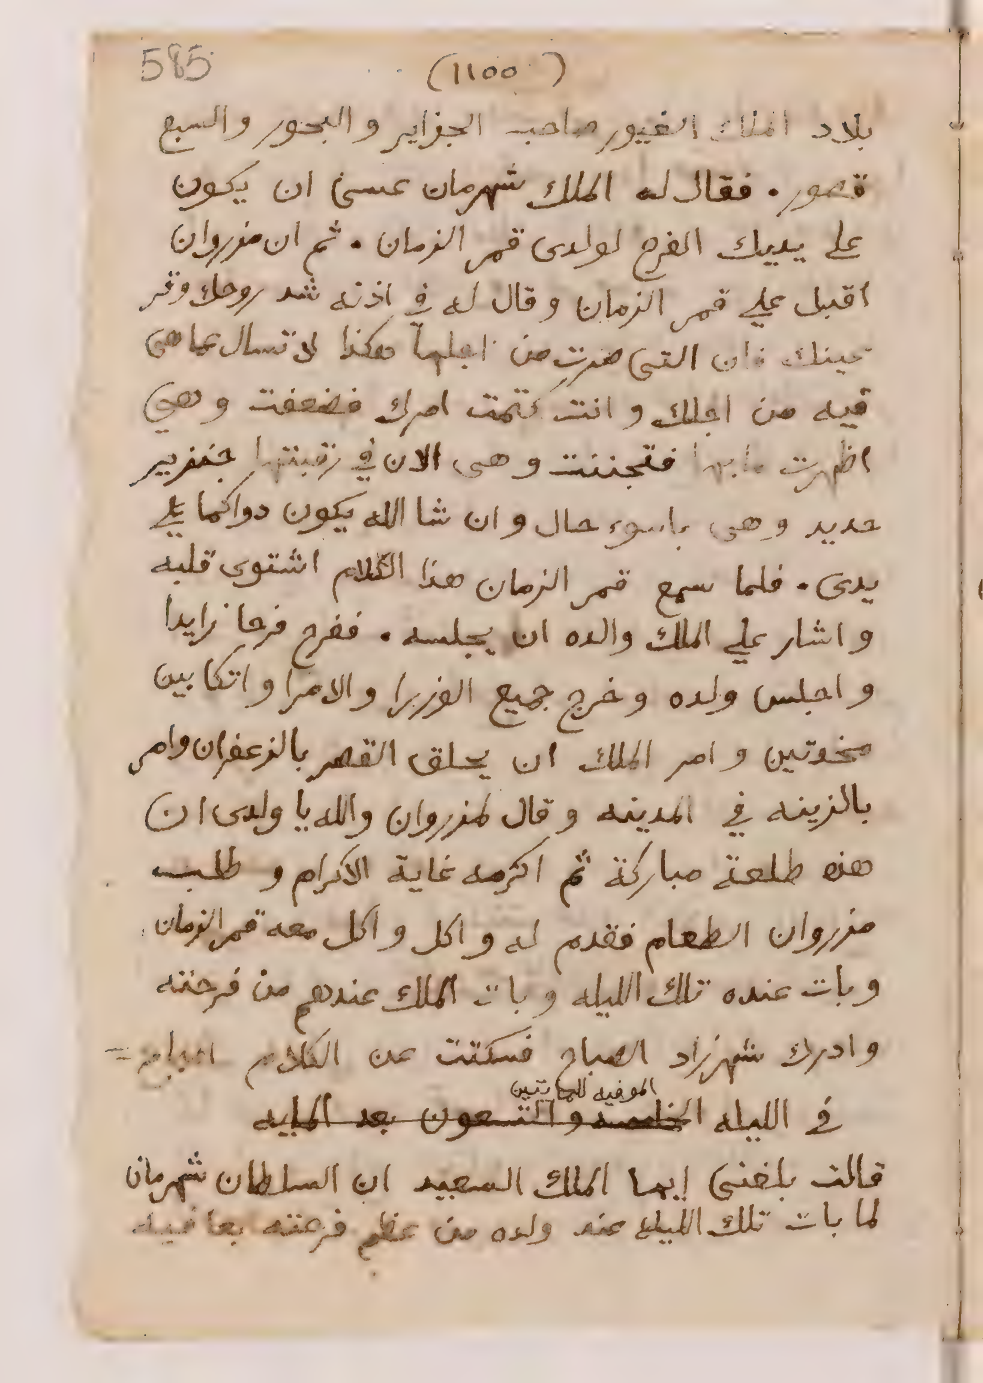 585
(١١٥٥)
بلاد الملك الغيور صاحب الجزاير والبحور والسبع
قصور . فقال له الملك شهرمان عسى ان يكون
على يديك الفرج لولدى قمر الزمان . ثم ان مزروان
اقبل علي قمر الزمان وقال له في اذنه شد روحك وقر
عينك فان التى صرت من اجلها هكذا لا تسال عما هى
فيه من اجلك وانت كتمت امرك فضعفت وهي
اظهرت ما بها فتجننت وهى الان في رقبتها جنزير
حديد وهى باسوء حال وان شا الله يكون دواكما علي
يدى . فلما سمع قمر الزمان هذا الكلام اشتوى قلبه
واشار علي الملك والده ان يجلسه . ففرح فرحا زايدا
واجلس ولده وخرج جميع الوزرا والامرا واتكا بين
مخدتين وامر الملك ان يحلق القصر بالزعفران وامر
بالزينه في المدينه وقال لمزروان والله يا ولدى ان
هذه طلعة مباركة ثم اكرمه غاية الاكرام وطلب
مزروان الطعام فقدم له واكل واكل معه قمر الزمان
وبات عنده تلك الليله وبات الملك عندهم من فرحته
وادرك شهرزاد الصباح فسكتت عن الكلام المباح
الموفيه للمائتين
في الليله الخامسه والتسعون بعد المايه
قالت بلغنى ايها الملك السعيد ان السلطان شهرمان
لما بات تلك الليله عند ولده من عظم فرحته بعافيه